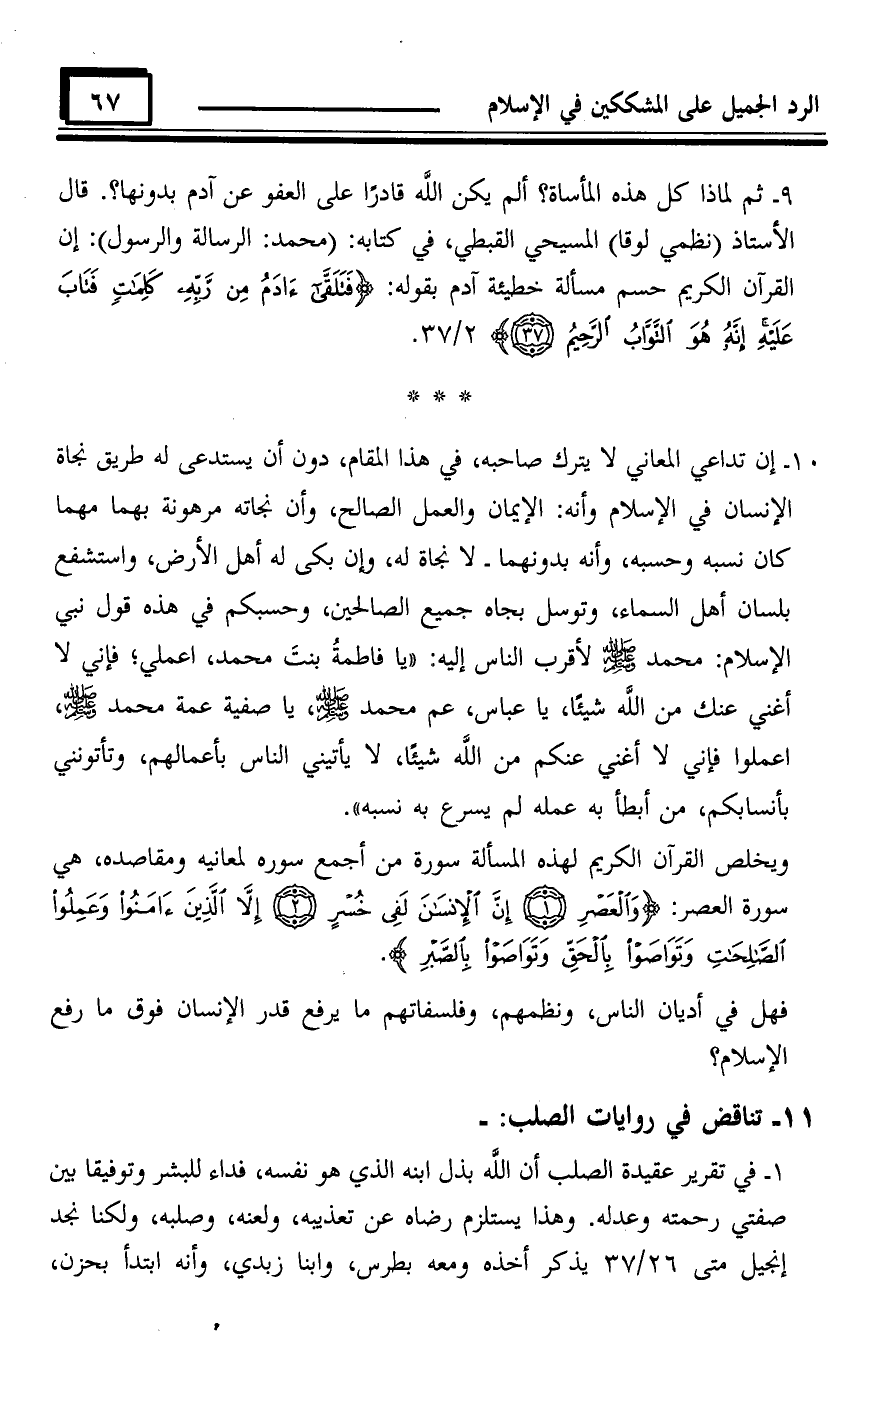 الرد الجميل على المشككين في الإسلام ٦٧
٩ـ ثم لماذا كل هذه المأساة؟ ألم يكن اللَّه قادرًا على العفو عن آدم بدونها؟. قال
الأستاذ (نظمي لوقا) المسيحي القبطي، في كتابه: (محمد: الرسالة والرسول): إن
القرآن الكريم حسم مسألة خطيئة آدم بقوله: ﴿فَتَلَقَّىٰٓ ءَادَمُ مِن رَّبِّهِۦ كَلِمَٰتٖ فَتَابَ
عَلَيۡهِۚ إِنَّهُۥ هُوَ ٱلتَّوَّابُ ٱلرَّحِيمُ ٣٧﴾ ٣٧/٢.
* * *
١٠ـ إن تداعي المعاني لا يترك صاحبه، في هذا المقام، دون أن يستدعى له طريق نجاة
الإنسان في الإسلام وأنه: الإيمان والعمل الصالح، وأن نجاته مرهونة بهما مهما
كان نسبه وحسبه، وأنه بدونهما ـ لا نجاة له، وإن بكى له أهل الأرض، واستشفع
بلسان أهل السماء، وتوسل بجاه جميع الصالحين، وحسبكم في هذه قول نبي
الإسلام: محمد ﷺ لأقرب الناس إليه: «يا فاطمةُ بنتَ محمد، اعملي؛ فإني لا
أغني عنك من اللَّه شيئًا، يا عباس، عم محمد ﷺ، يا صفية عمة محمد ﷺ،
اعملوا فإني لا أغني عنكم من اللَّه شيئًا، لا يأتيني الناس بأعمالهم، وتأتونني
بأنسابكم، من أبطأ به عمله لم يسرع به نسبه».
ويخلص القرآن الكريم لهذه المسألة سورة من أجمع سوره لمعانيه ومقاصده، هي
سورة العصر: ﴿وَٱلۡعَصۡرِ ١ إِنَّ ٱلۡإِنسَٰنَ لَفِي خُسۡرٍ ٢ إِلَّا ٱلَّذِينَ ءَامَنُواْ وَعَمِلُواْ
ٱلصَّٰلِحَٰتِ وَتَوَاصَوۡاْ بِٱلۡحَقِّ وَتَوَاصَوۡاْ بِٱلصَّبۡرِ﴾.
فهل في أديان الناس، ونظمهم، وفلسفاتهم ما يرفع قدر الإنسان فوق ما رفع
الإسلام؟
١١ـ تناقض في روايات الصلب: ـ
١ـ في تقرير عقيدة الصلب أن اللَّه بذل ابنه الذي هو نفسه، فداء للبشر وتوفيقا بين
صفتي رحمته وعدله. وهذا يستلزم رضاه عن تعذيبه، ولعنه، وصلبه، ولكنا نجد
إنجيل متى ٣٧/٢٦ يذكر أخذه ومعه بطرس، وابنا زبدي، وأنه ابتدأ بحزن،